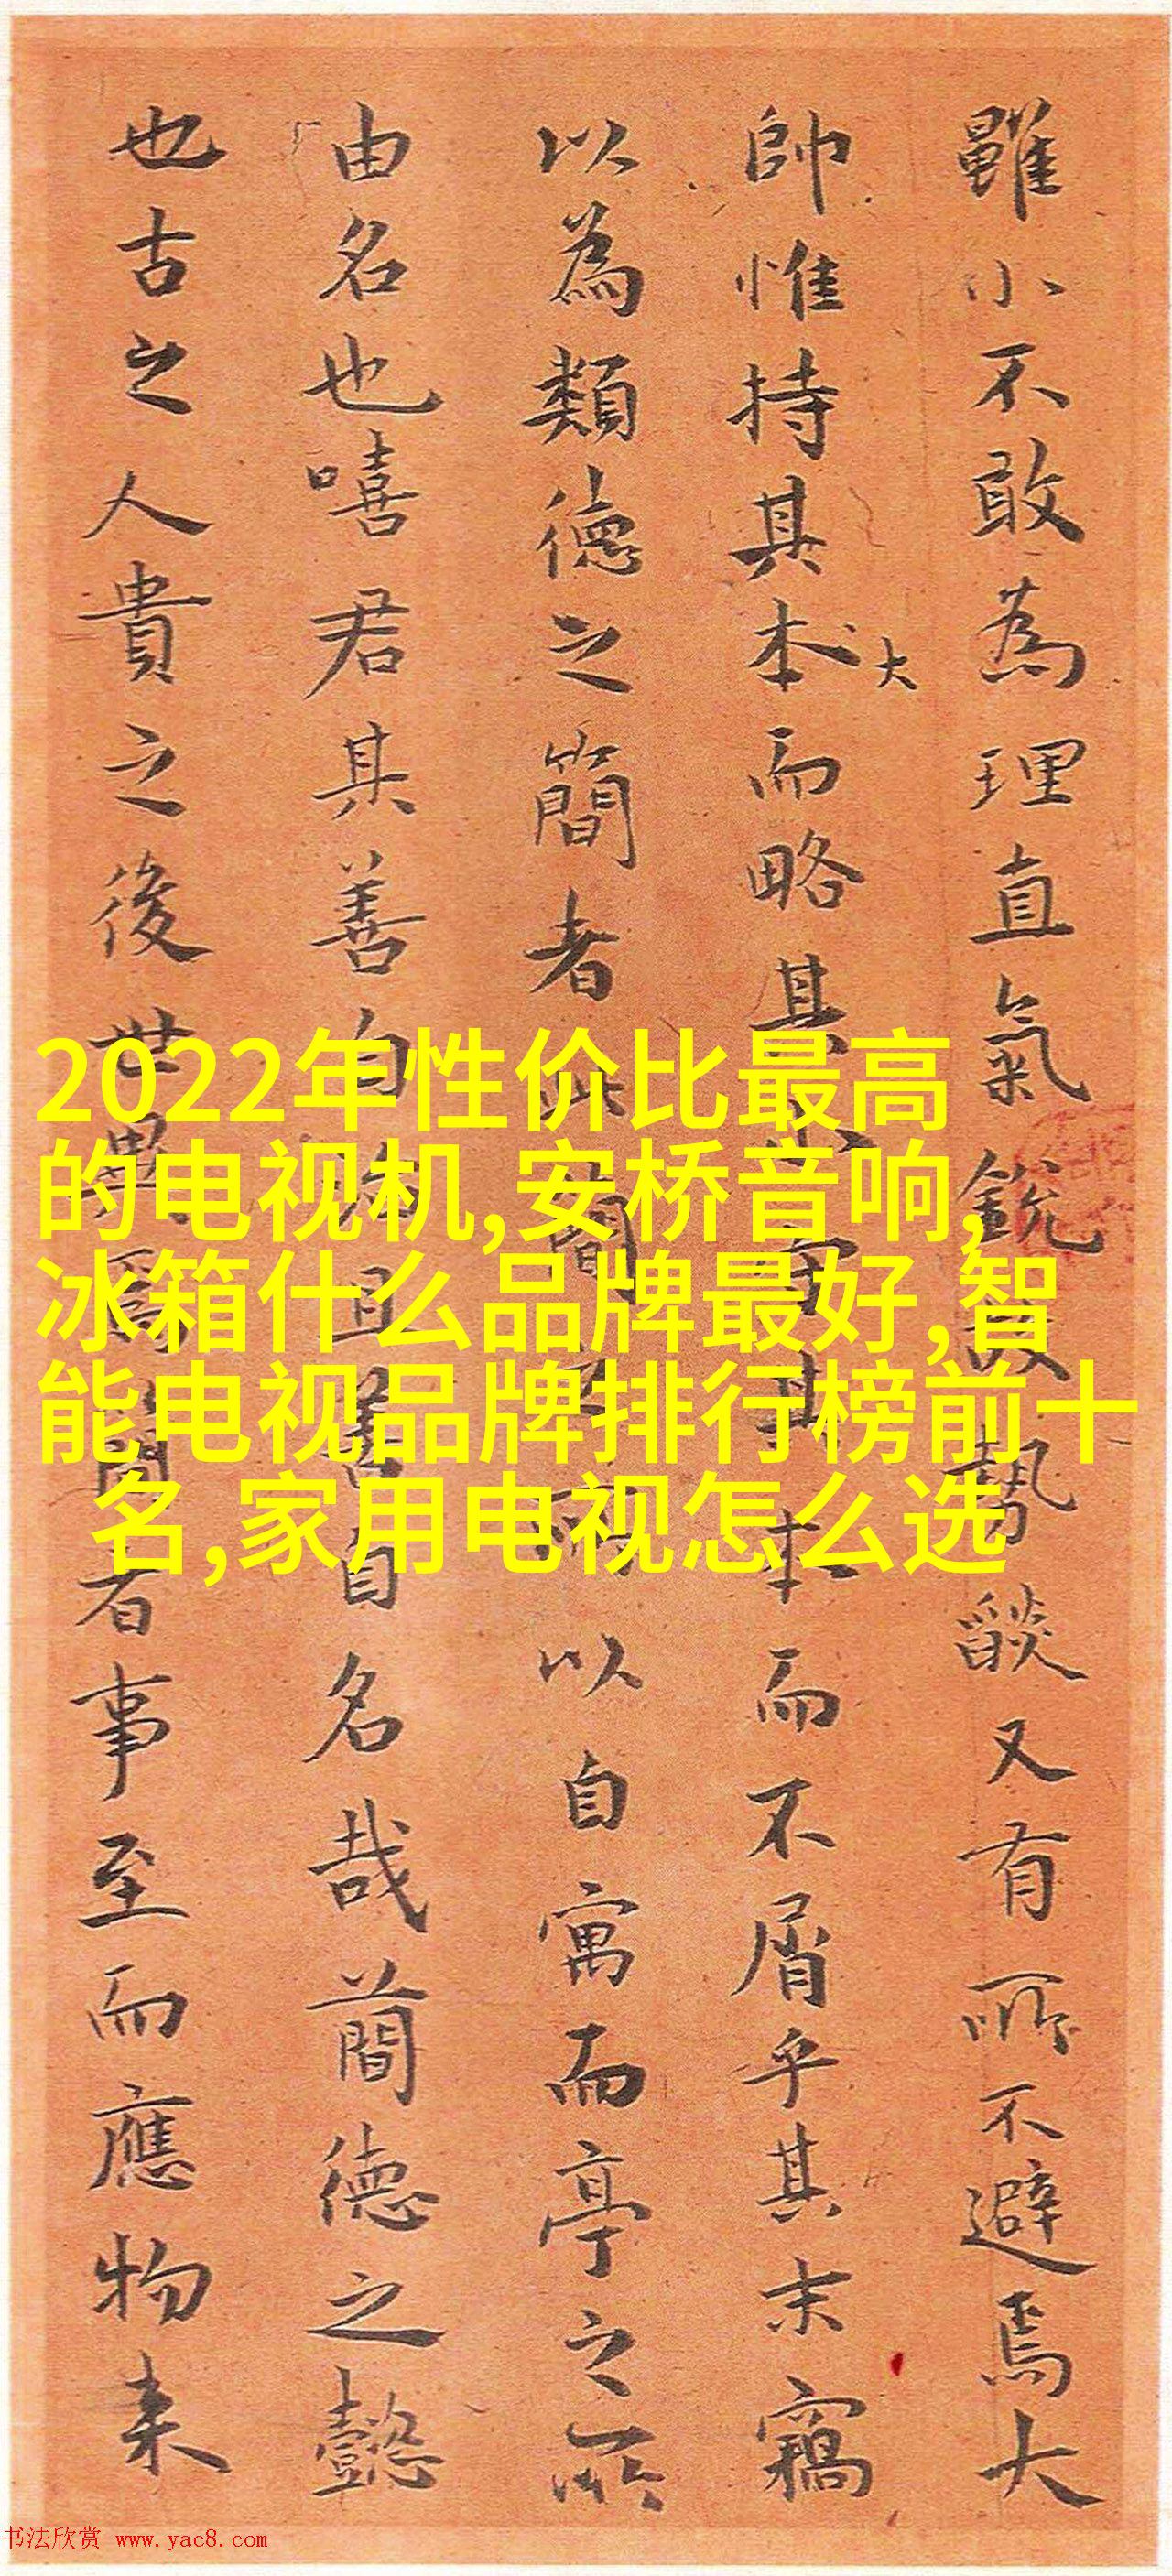 雖小不敢為理直氣銳勢燄又有所不避焉大
帥惟持其本而略其小守其本而不屑乎其末竊
大
以為類德之簡者此簡所以自寓而亭之所
由名也嘻君其善自治且善自名哉蕳德之懿
也古之人貴之後世異焉簡者事至而應物来
2022年性价比最高
的电视机,安桥音响,
冰箱什么品牌最好,智
能电视品牌排行榜前十
名,家用电视怎么选
书法欣赏 www.yac8.com